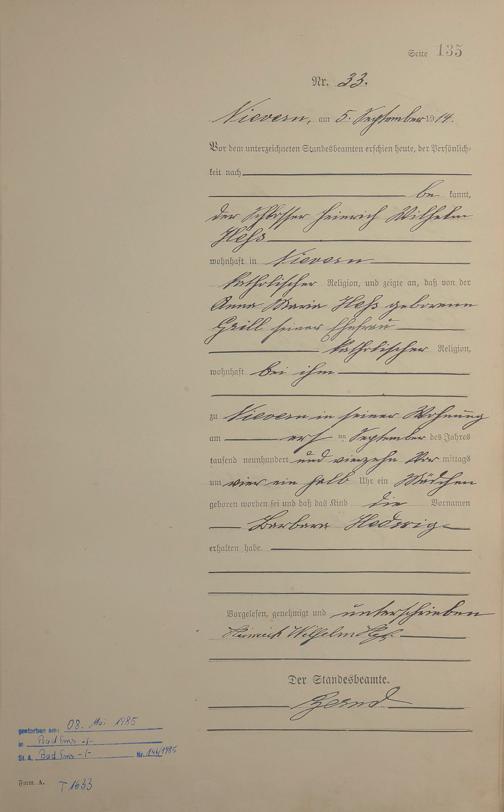 Seite 135
Nr. 33.
Nievern, am 5. September 1914.
Vor dem unterzeichneten Standesbeamten erschien heute, der Persönlich-
keit nach
be kannt,
der Schlosser Heinrich Wilhelm
Heß
wohnhaft in Nievern
katholischer Religion, und zeigte an, daß von der
Anna Maria Heß geborenen
Grill seiner Ehefrau
katholischer Religion,
wohnhaft bei ihm
zu Nievern in seiner Wohnung
am ten September des Jahres
tausend neunhundert und vierzehn Vor mittags
um vier ein halb Uhr ein Mädchen
geboren worden sei und daß das Kind die Vornamen
Barbara Hedwig
erhalten habe.
Vorgelesen, genehmigt und unterschrieben
Heinrich Wilhelm Heß.
Der Standesbeamte.
gestorben am: 08. Mai 1985
in Bad Ems -/-
St. A. Bad Ems -/- Nr. 144/1985
Form. A. T 1633